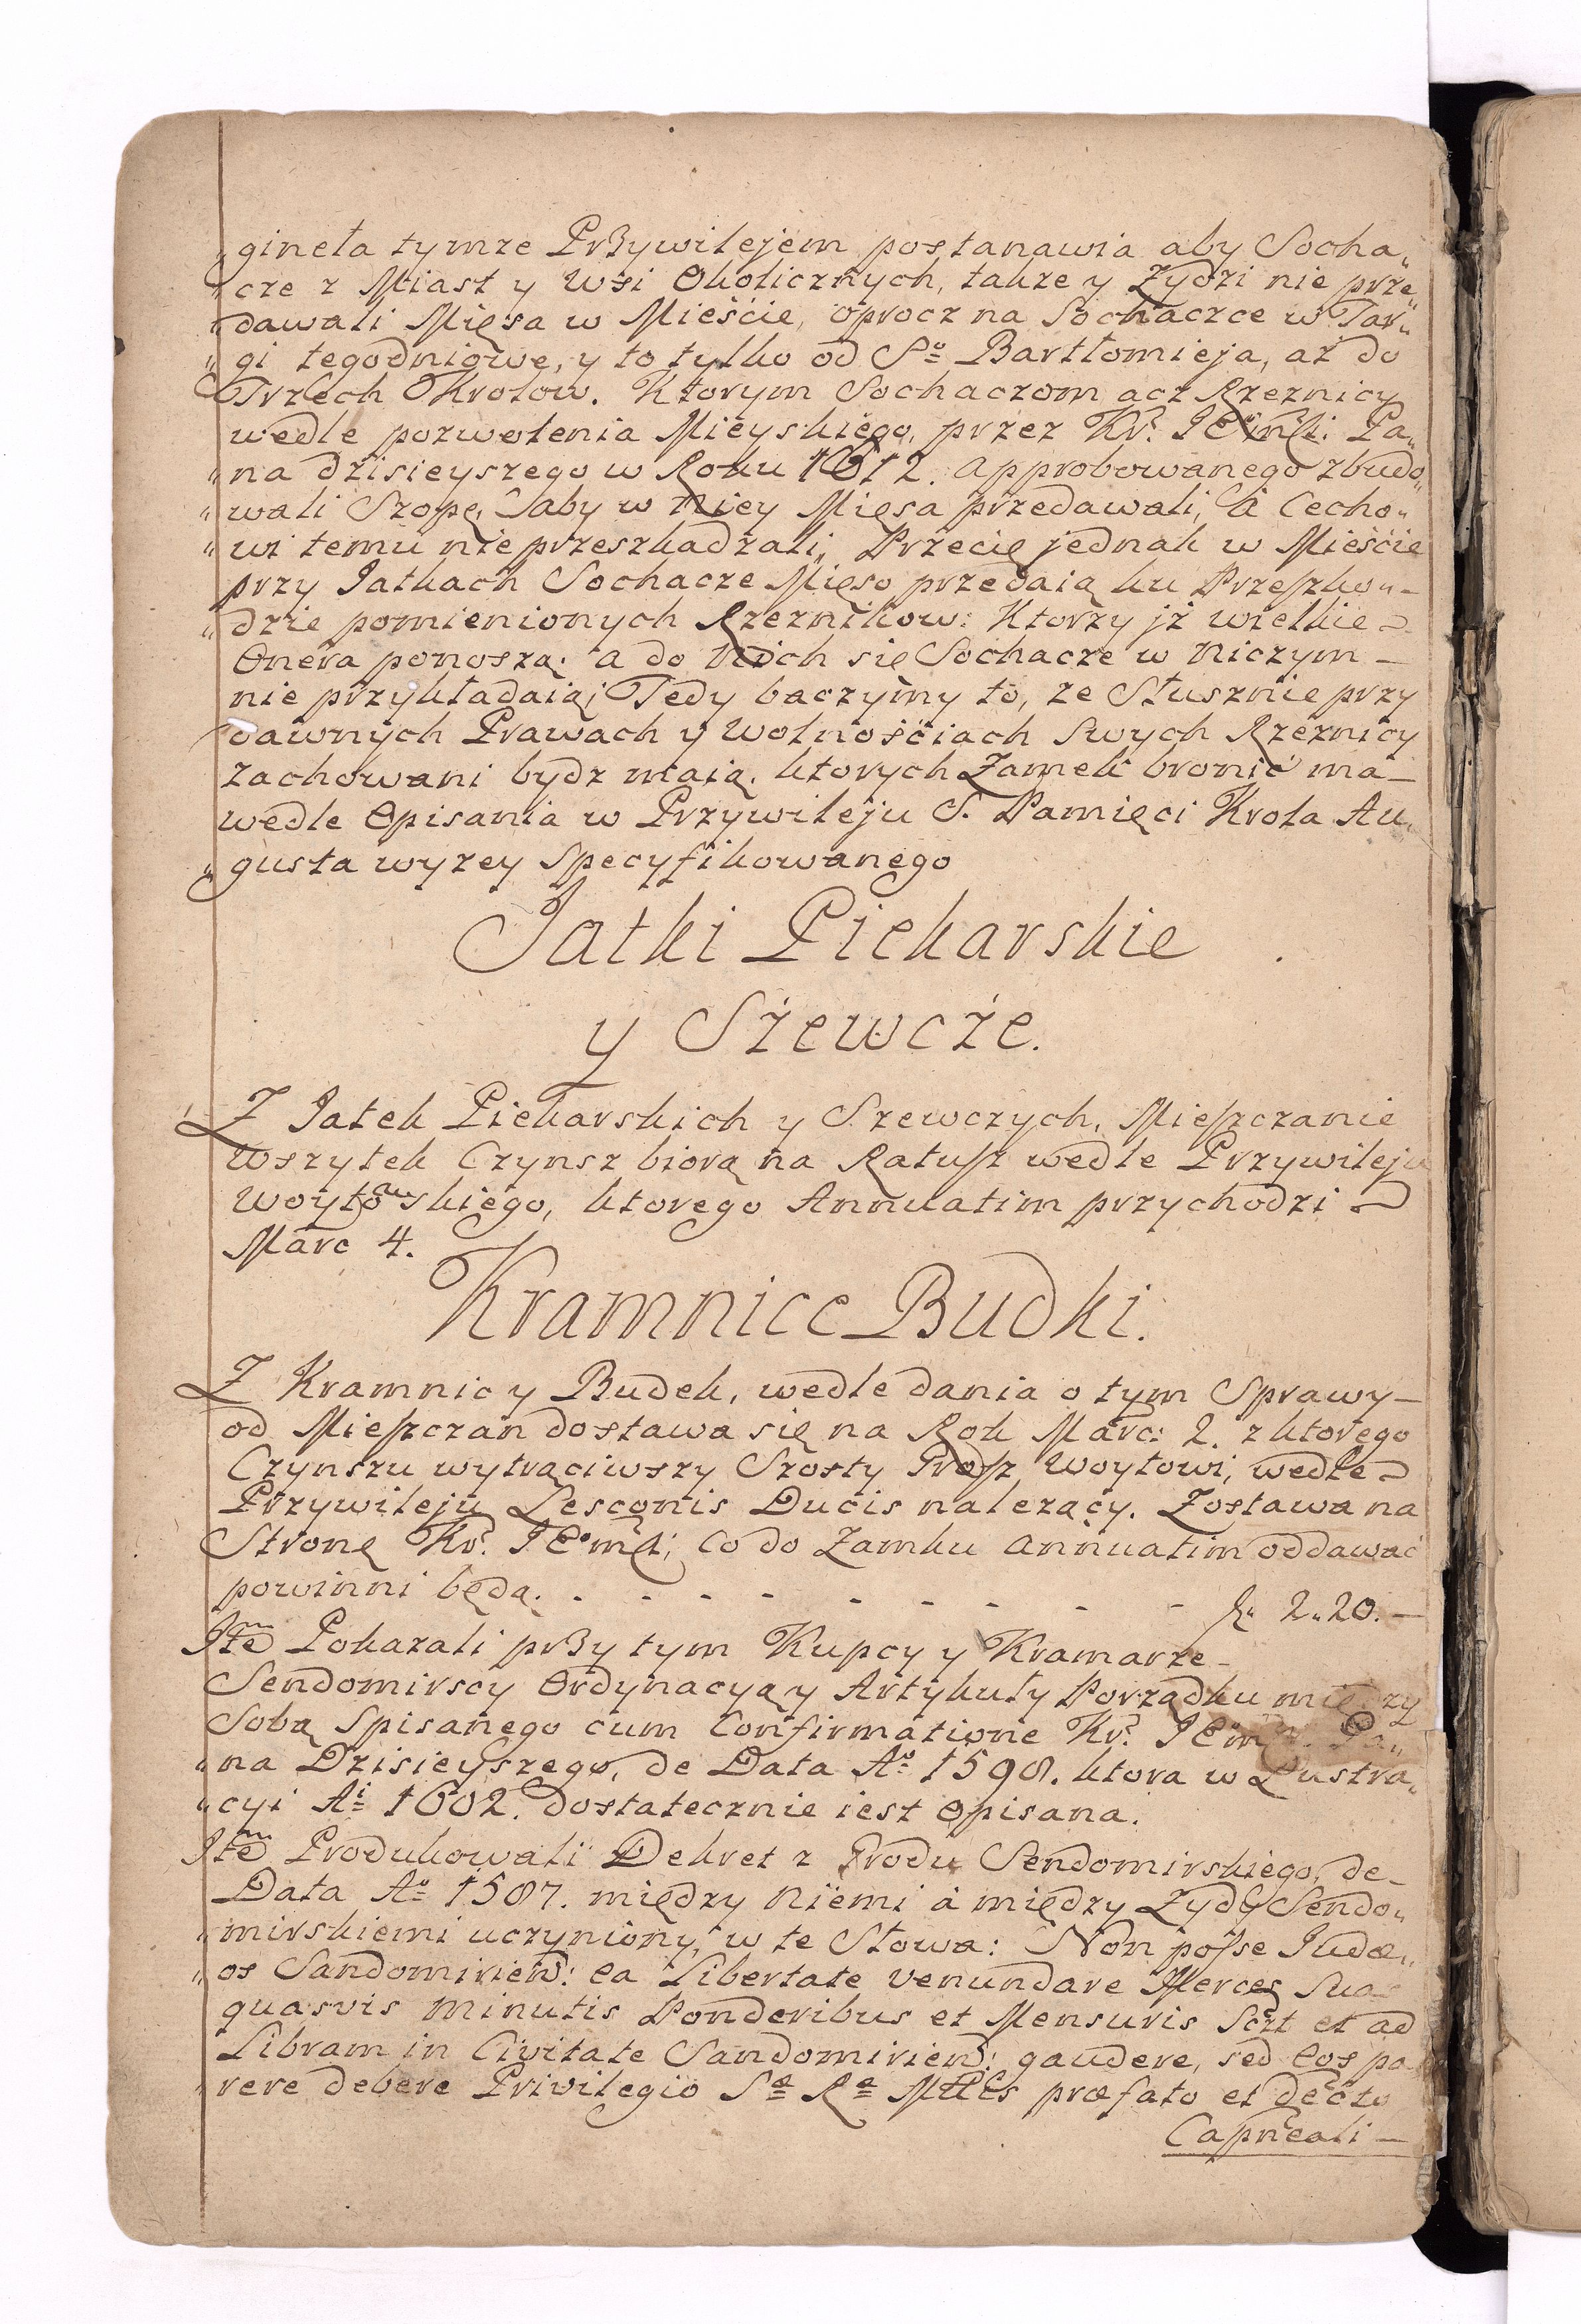 „gineła tymze Przywilejem postanawia aby Socha„
„cze z Miast y Wsi Okolicznych, takze y Zydzi nie prze„
„dawali Mięsa w Mieście, oprocz na Sochaczce w Tar„
„gi tegodniowe, y to tylko od S.º Bartłomieja, aż do
Trzech Krolow. Ktorym Sochaczom acz Rzeznicy
wedle pozwolenia Mieyskiego, przez Kr? JEmśći: Pa„
„na dzisieyszego w Roku 1612. approbowanego zbudo„
„wali Szopę, aby w niey Mięsa przedawali, a Cecho„
„wi temu nie przeszkadzali, Przecię jednak w Mieście
przy Jatkach Sochacze Mięso przedaią ku Przeszko„
„dzie pomienionych Rzeznikow: Ktorzy jż wielkie
Onera ponoszą: a do Nich się Sochacze w niczym –
nie przykładaią; Tedy baczymy to, ze Słusznie przy
dawnych Prawach y Wolnościach Swych Rzeznicy
zachowani bydz maią, ktorych Zamek bronić ma –
wedle Opisania w Przywileju S. Pamięci Krola Au„
„gusta wyzey Specyfikowanego
Jatki Piekarskie
y Szewcze.
Z Jatek Piekarskich y Szewczych, Mieszczanie
Wszytek Czynsz biorą na Ratusz wedle Przywileju
Woytowskiego, ktorego Annuatim przychodzi
Marc 4.
Kramnice Budki.
Z Kramnic y Budek, wedle dania o tym Sprawy –
od Mieszczan dostawa się na Rok Marc: 2. z ktorego
Czynszu wytrąciwszy Szosty Grosz Woytowi, wedle
Przywileju Lesconis Ducis nalezący. Zostawa na
Stronę Kr? JEºmśći; co do Zamku annuatim oddawać
powinni będą. . - - - - - - - - f: 2„20. –
Jtem Pokazali przy tym Kupcy y Kramarze –
Sendomirscy Ordynacyą y Artykuły Porządku między
Sobą Spisanego cum Confirmatione Kr? JEm Pa„
„na Dzisieyszego, de Data Aº 1598. ktora w Lustra„
„cyi Ai 1602. dostatecznie iest opisana.
Jtem Produkowali Dekret z Grodu Sendomirskiego, de –
Data Aº 1587. między niemi a między Zydy Sendo„
„mirskiemi uczyniony, w te Słowa: Non posse Judæ„
„os Sandomirien: ea Libertate venundare Merces Suas
quasvis minutis Ponderibus et Mensuris Sczt et ad
Libram in Civitate Sandomirien: gaudere, sed eos pa
rere debere Privilegio Sæ Ræ Mttis præfato et decto
Capneali –